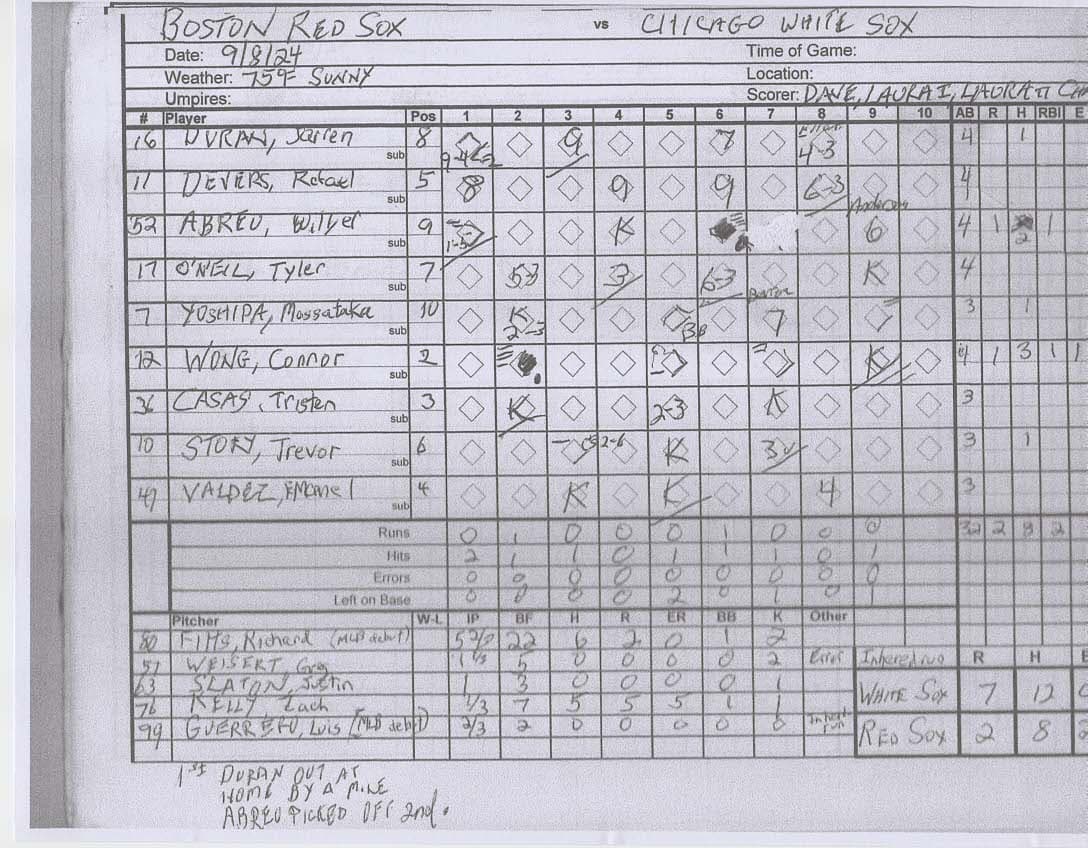 BOSTON RED SOX vs CHICAGO WHITE SOX
Date: 9/8/24 Time of Game:
Weather: 75°F SUNNY Location:
Umpires: Scorer: DAVE, LAURA I, LAURA II
# Player Pos 1 2 3 4 5 6 7 8 9 10 AB R H RBI E
16 DURAN, Jarren sub 8 9-4-2 9 7 4-3 4 1
11 DEVERS, Rafael sub 5 8 9 9 6-3 4
52 ABREU, Wilyer sub 9 1-5 K Anderson 6 4 1 2 1
17 O'NEIL, Tyler sub 7 5-3 3 6-3 K 4
7 YOSHIDA, Massataka sub 10 K 2-3 BB 7 3 1
12 WONG, Connor sub 2 K 4 1 3 1 1
36 CASAS, Tristen sub 3 K 2-3 K 3
10 STORY, Trevor sub 6 CS 2-6 K 3U 3 1
47 VALDEZ, EManel sub 4 K K 4 3
Runs 0 1 0 0 0 1 0 0 0 32 2 8 2
Hits 2 1 1 0 1 1 1 0 1
Errors 0 0 0 0 0 0 0 0 0
Left on Base 0 0 0 0 2 0 1 0 1
Pitcher W-L IP BF H R ER BB K Other
80 FITTS, Richard (MLB debut) 5 2/3 22 6 2 0 1 2
57 WEISERT, Greg 1 1/3 5 0 0 0 0 2 Error R H E
63 SLATON, Justin 1 3 0 0 0 0 1
76 KELLY, Zach 1/3 7 5 5 5 1 1 WHITE SOX 7 12
99 GUERRERO, Luis [MLB debut] 2/3 2 0 0 0 0 0 RED SOX 2 8
1st DURAN OUT AT
HOME BY A MILE
ABREU PICKED OFF 2nd.